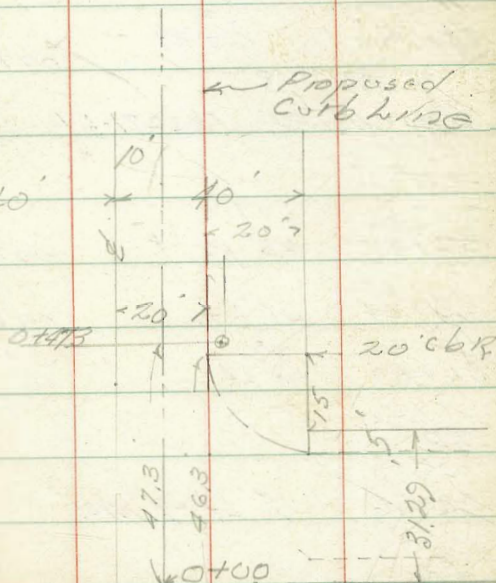 Proposed
Curb Line
10'
40'
20'
20'
0+47.3
20' Cb R
15'
5'
47.3
46.3
31.29
0+00